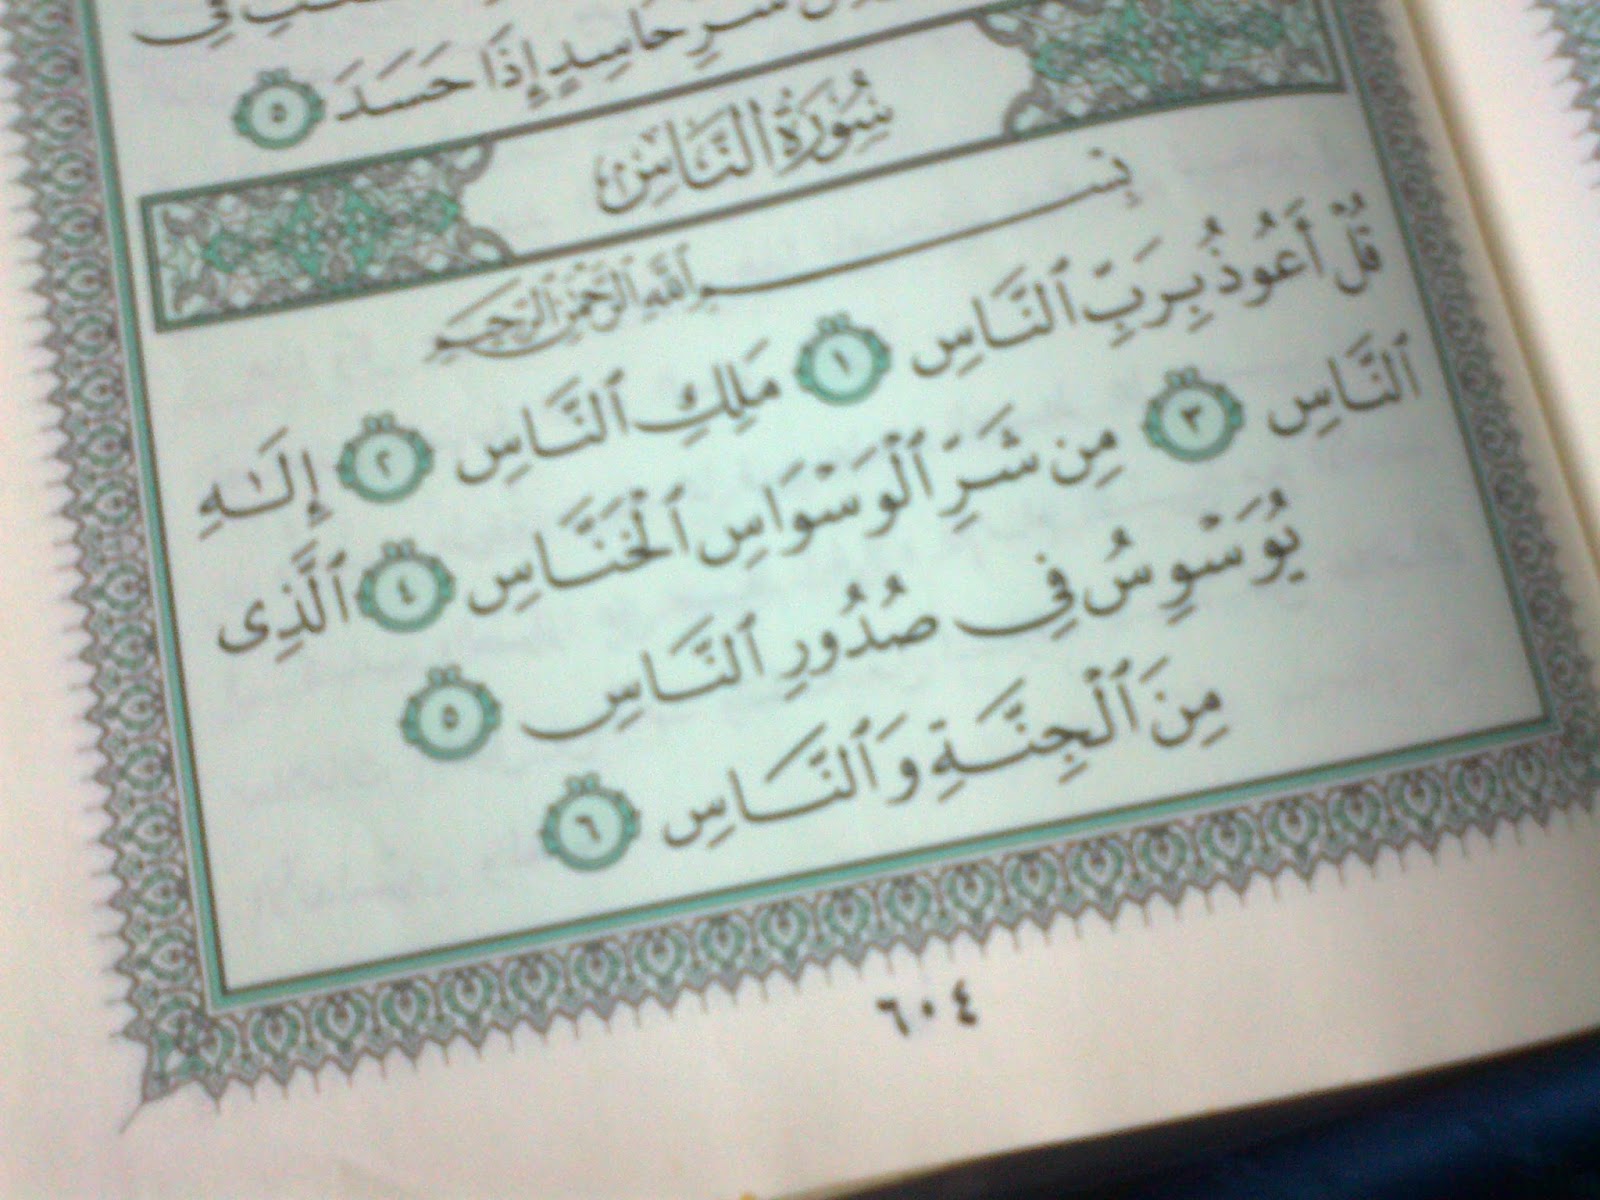 شَرِّ حَاسِدٍ إِذَا حَسَدَ ٥
سُورَةُ النَّاسِ
بِسْمِ ٱللَّهِ ٱلرَّحْمَٰنِ ٱلرَّحِيمِ
قُلْ أَعُوذُ بِرَبِّ ٱلنَّاسِ ١ مَلِكِ ٱلنَّاسِ ٢ إِلَٰهِ
ٱلنَّاسِ ٣ مِن شَرِّ ٱلْوَسْوَاسِ ٱلْخَنَّاسِ ٤ ٱلَّذِى
يُوَسْوِسُ فِى صُدُورِ ٱلنَّاسِ ٥
مِنَ ٱلْجِنَّةِ وَٱلنَّاسِ ٦
٦٠٤